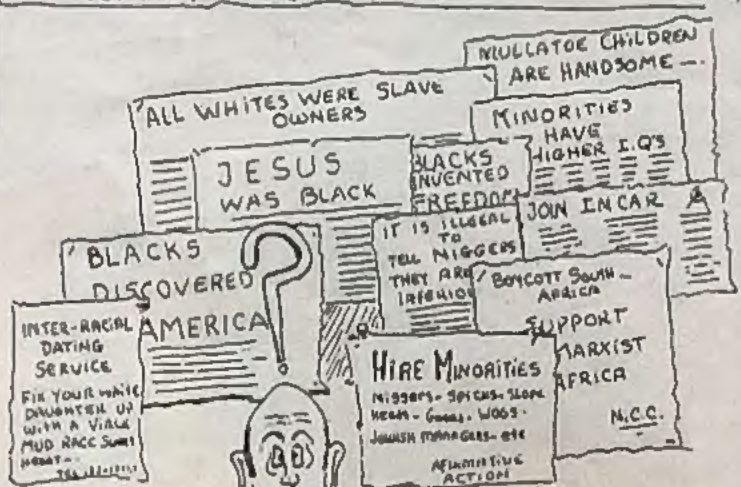 MULLATOE CHILDREN
ARE HANDSOME —.
ALL WHITES WERE SLAVE
OWNERS
MINORITIES
HAVE
HIGHER I.Q'S
JESUS
WAS BLACK
BLACKS
INVENTED
FREEDOM
JOIN INCAR
IT IS ILLEGAL
TO
TELL NIGGERS
THEY ARE
INFERIOR
BLACKS
DISCOVERED
AMERICA
?
BOYCOTT SOUTH —
AFRICA
SUPPORT
MARXIST
AFRICA
N.C.C.
INTER-RACIAL
DATING
SERVICE
FIX YOUR WHITE
DAUGHTER UP
WITH A VIRLE
MUD RACE
HIRE MINORITIES
NIGGERS - SPICKS - SLOPE
HEADS - WOGS -
JEWISH MANAGERS - ETC
AFIRMATIVE
ACTION